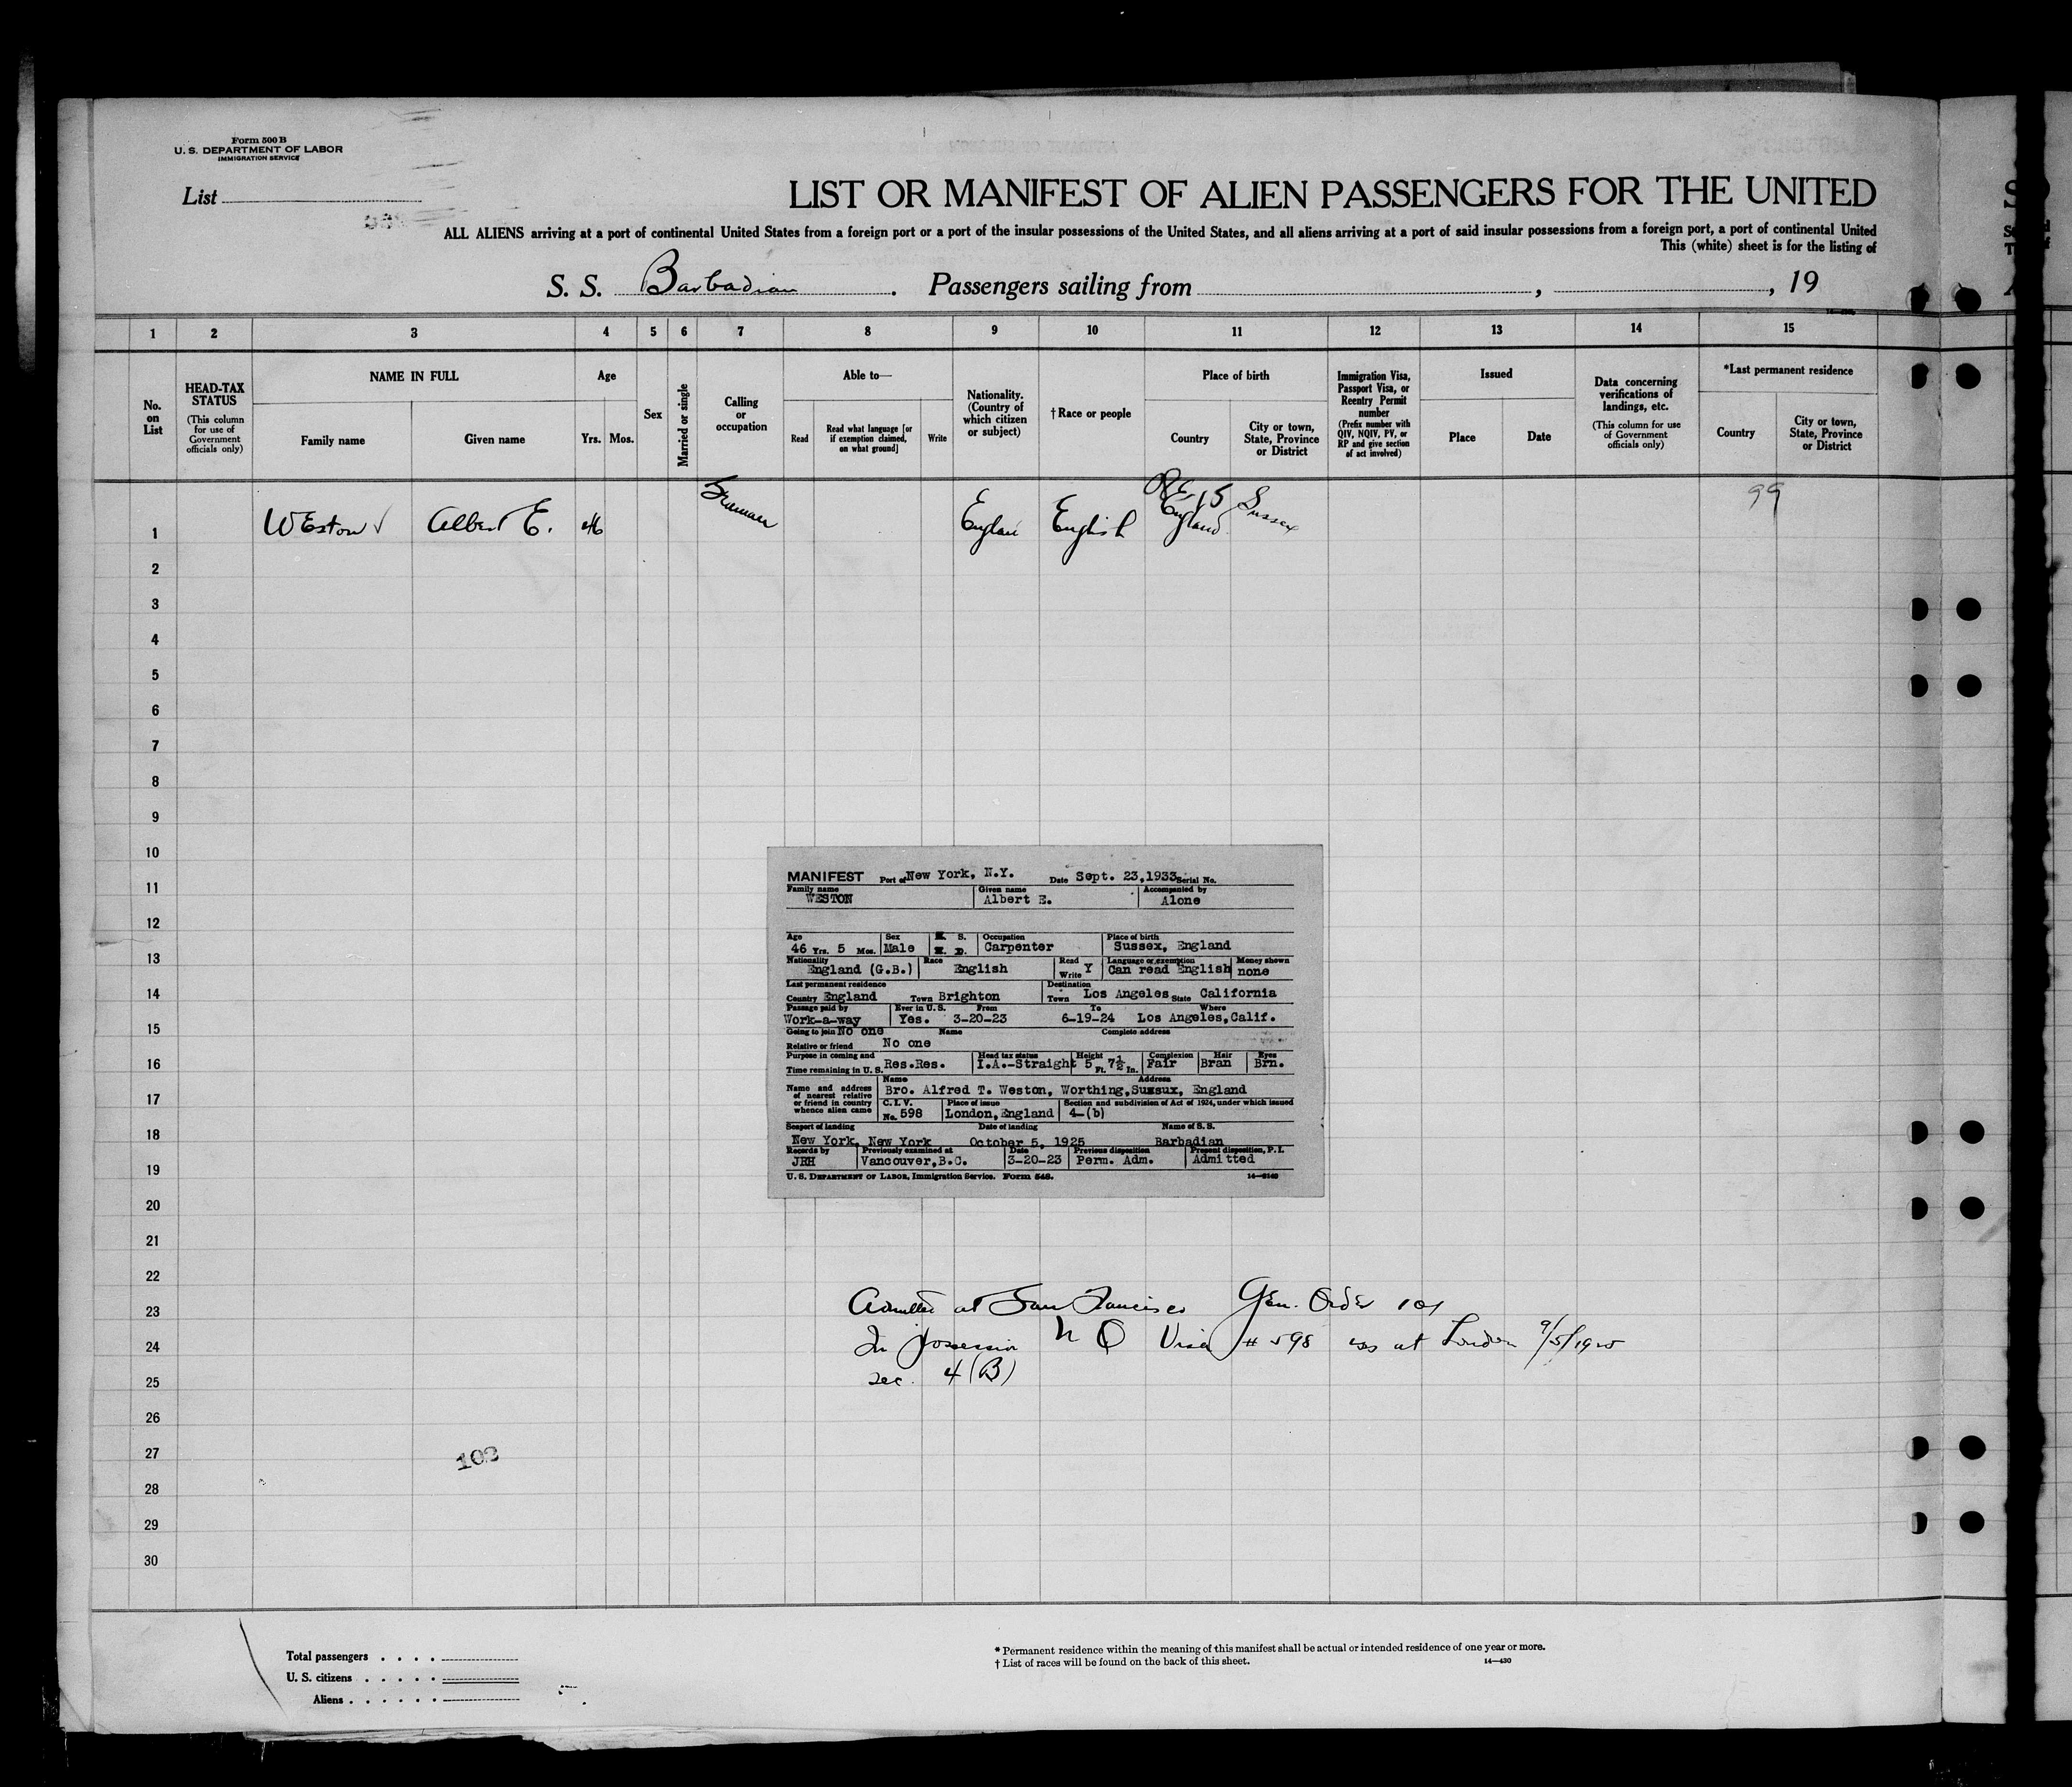 Form 500 B
U. S. DEPARTMENT OF LABOR
IMMIGRATION SERVICE
List
LIST OR MANIFEST OF ALIEN PASSENGERS FOR THE UNITED
ALL ALIENS arriving at a port of continental United States from a foreign port or a port of the insular possessions of the United States, and all aliens arriving at a port of said insular possessions from a foreign port, a port of continental United
This (white) sheet is for the listing of
S. S. Barbadian. Passengers sailing from , , 19
1 2 3 4 5 6 7 8 9 10 11 12 13 14 15
No. on List
HEAD-TAX STATUS
(This column for use of Government officials only)
NAME IN FULL
Family name
Given name
Age
Yrs. Mos.
Sex
Married or single
Calling or occupation
Able to—
Read
Read what language [or if exemption claimed, on what ground]
Write
Nationality. (Country of which citizen or subject)
† Race or people
Place of birth
Country
City or town, State, Province or District
Immigration Visa, Passport Visa, or Reentry Permit number
(Prefix number with QIV, NQIV, PV, or RP and give section of act involved)
Issued
Place
Date
Data concerning verifications of landings, etc.
(This column for use of Government officials only)
*Last permanent residence
Country
City or town, State, Province or District
99
1 Weston ✓ Albert E. 46 English England Sussex
2
3
4
5
6
7
8
9
10
11
12
13
14
15
16
17
18
19
20
21
22
23
24
25
26
27
28
29
30
MANIFEST Port of New York, N.Y. Date Sept. 23,1933 Serial No.
Family name Given name Accompanied by
WESTON Albert E. Alone
Age Sex S. Occupation Place of birth
46 Yrs. 5 Mos. Male D. Carpenter Sussex, England
Nationality Race Read Language or exemption Money shown
England (G.B.) English Write Y Can read English none
Last permanent residence Destination
Country England Town Brighton Town Los Angeles State California
Passage paid by Ever in U. S. From To Where
Work-a-way Yes. 3-20-23 6-19-24 Los Angeles,Calif.
Going to join No one Name Complete address
Relative or friend No one
Purpose in coming and Head tax status Height Complexion Hair Eyes
Time remaining in U. S. Res.Res. I.A.-Straight 5 Ft. 7½ In. Fair Bran Brn.
Name and address of nearest relative or friend in country whence alien came
Name Address
Bro. Alfred T. Weston, Worthing,Sussux, England
C. I. V. Place of issue Section and subdivision of Act of 1924, under which issued
No. 598 London,England 4-(b)
Seaport of landing Date of landing Name of S. S.
New York, New York October 5, 1925 Barbadian
Records by Previously examined at Date Previous disposition Present disposition, P. I.
JRH Vancouver,B.C. 3-20-23 Perm. Adm. Admitted
U. S. DEPARTMENT OF LABOR, Immigration Service. Form 548. 14—2140
Admitted at San Francisco Gen. Order 101
In possession N Q Visa # 598 iss at London 9/5/1925
sec. 4(B)
102
Total passengers
U. S. citizens
Aliens
* Permanent residence within the meaning of this manifest shall be actual or intended residence of one year or more.
† List of races will be found on the back of this sheet.
14—430